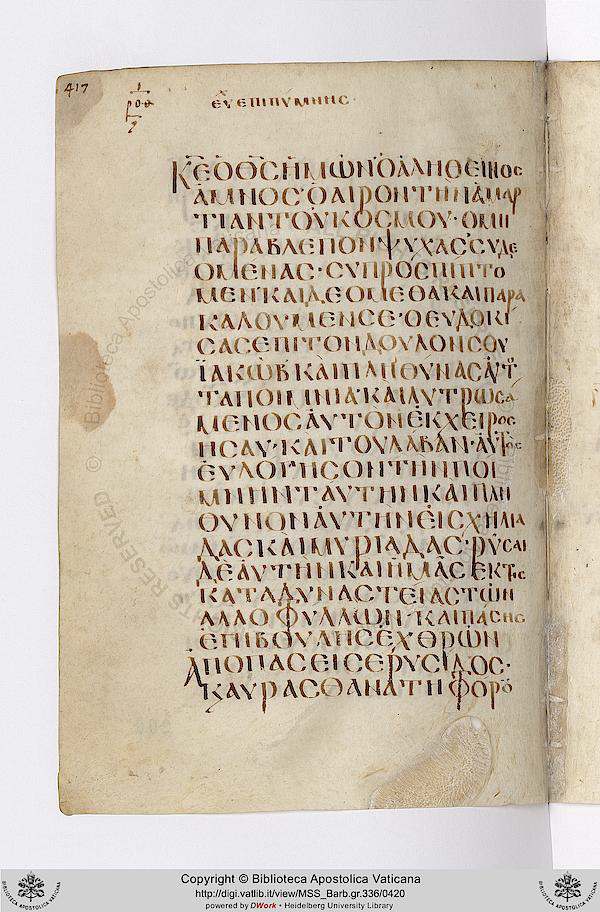 417
ροθ
ΕΥ ΕΠΙ ΠΥΜΝΗΣ·
ΚΕ Ο ΘΣ ΗΜΩΝ Ο ΑΛΗΘΕΙΝΟΣ
ΑΜΝΟΣ· Ο ΑΙΡΟΝ ΤΗΝ ΑΜΑΡ
ΤΙΑΝ ΤΟΥ ΚΟΣΜΟΥ· Ο ΜΗ
ΠΑΡΑΒΛΕΠΟΝ ΨΥΧΑΣ ΣΟΥ ΔΕ
ΟΜΕΝΑΣ· ΣΥ ΠΡΟΣΠΙΠΤΟ
ΜΕΝ ΚΑΙ ΔΕΟΜΕΘΑ ΚΑΙ ΠΑΡΑ
ΚΑΛΟΥΜΕΝ ΣΕ· Ο ΕΥΔΟΚΙ
ΣΑΣ ΕΠΙ ΤΟΝ ΔΟΥΛΟΝ ΣΟΥ
ΪΑΚΩΒ ΚΑΙ ΠΛΗΘΥΝΑΣ ΑΥΤΟΥ
ΤΑ ΠΟΙΜΝΙΑ· ΚΑΙ ΛΥΤΡΩΣΑ
ΜΕΝΟΣ ΑΥΤΟΝ ΕΚ ΧΕΙΡΟΣ
ΗΣΑΥ· ΚΑΙ ΤΟΥ ΛΑΒΑΝ· ΑΥΤΟΣ
ΕΥΛΟΓΗΣΟΝ ΤΗΝ ΠΟΙ
ΜΝΗΝ ΤΑΥΤΗΝ ΚΑΙ ΠΛΗ
ΘΥΝΟΝ ΑΥΤΗΝ ΕΙΣ ΧΗΛΙΑ
ΔΑΣ ΚΑΙ ΜΥΡΙΑΔΑΣ· ΡΥΣΑΙ
ΔΕ ΑΥΤΗΝ ΚΑΙ ΗΜΑΣ ΕΚ ΤΗΣ
ΚΑΤΑΔΥΝΑΣΤΕΙΑΣ ΤΩΝ
ΑΛΛΟΦΥΛΛΩΝ· ΚΑΙ ΠΑΣΗΣ
ΕΠΗΒΟΥΛΗΣ ΕΧΘΡΩΝ
ΑΠΟ ΠΑΣΕΙΣ ΕΡΥΣΙΔΟΣ·
ΚΑΥΡΑΣ ΘΑΝΑΤΗΦΟΡΟΥ
Copyright © Biblioteca Apostolica Vaticana
http://digi.vatlib.it/view/MSS_Barb.gr.336/0420
powered by DWork - Heidelberg University Library